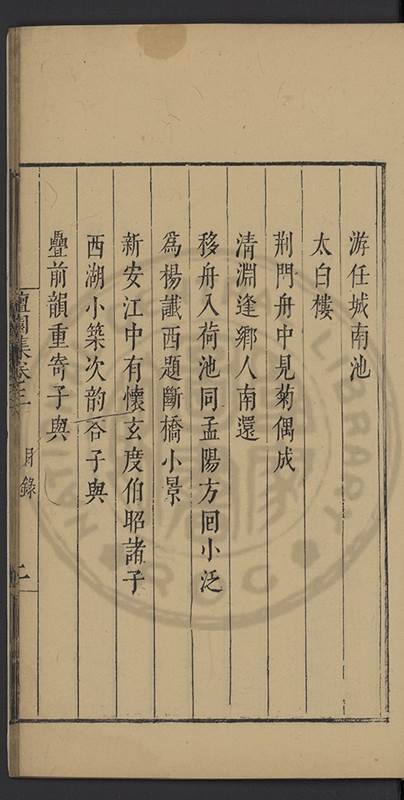 游任城南池
太白樓
荆門舟中見菊偶成
清淵逢鄉人南還
移舟入荷池同孟陽方回小泛
爲楊讖西題斷橋小景
新安江中有懷玄度伯昭諸子
西湖小築次韵答子與
疊前韻重寄子與
檀園集卷三
目錄
二